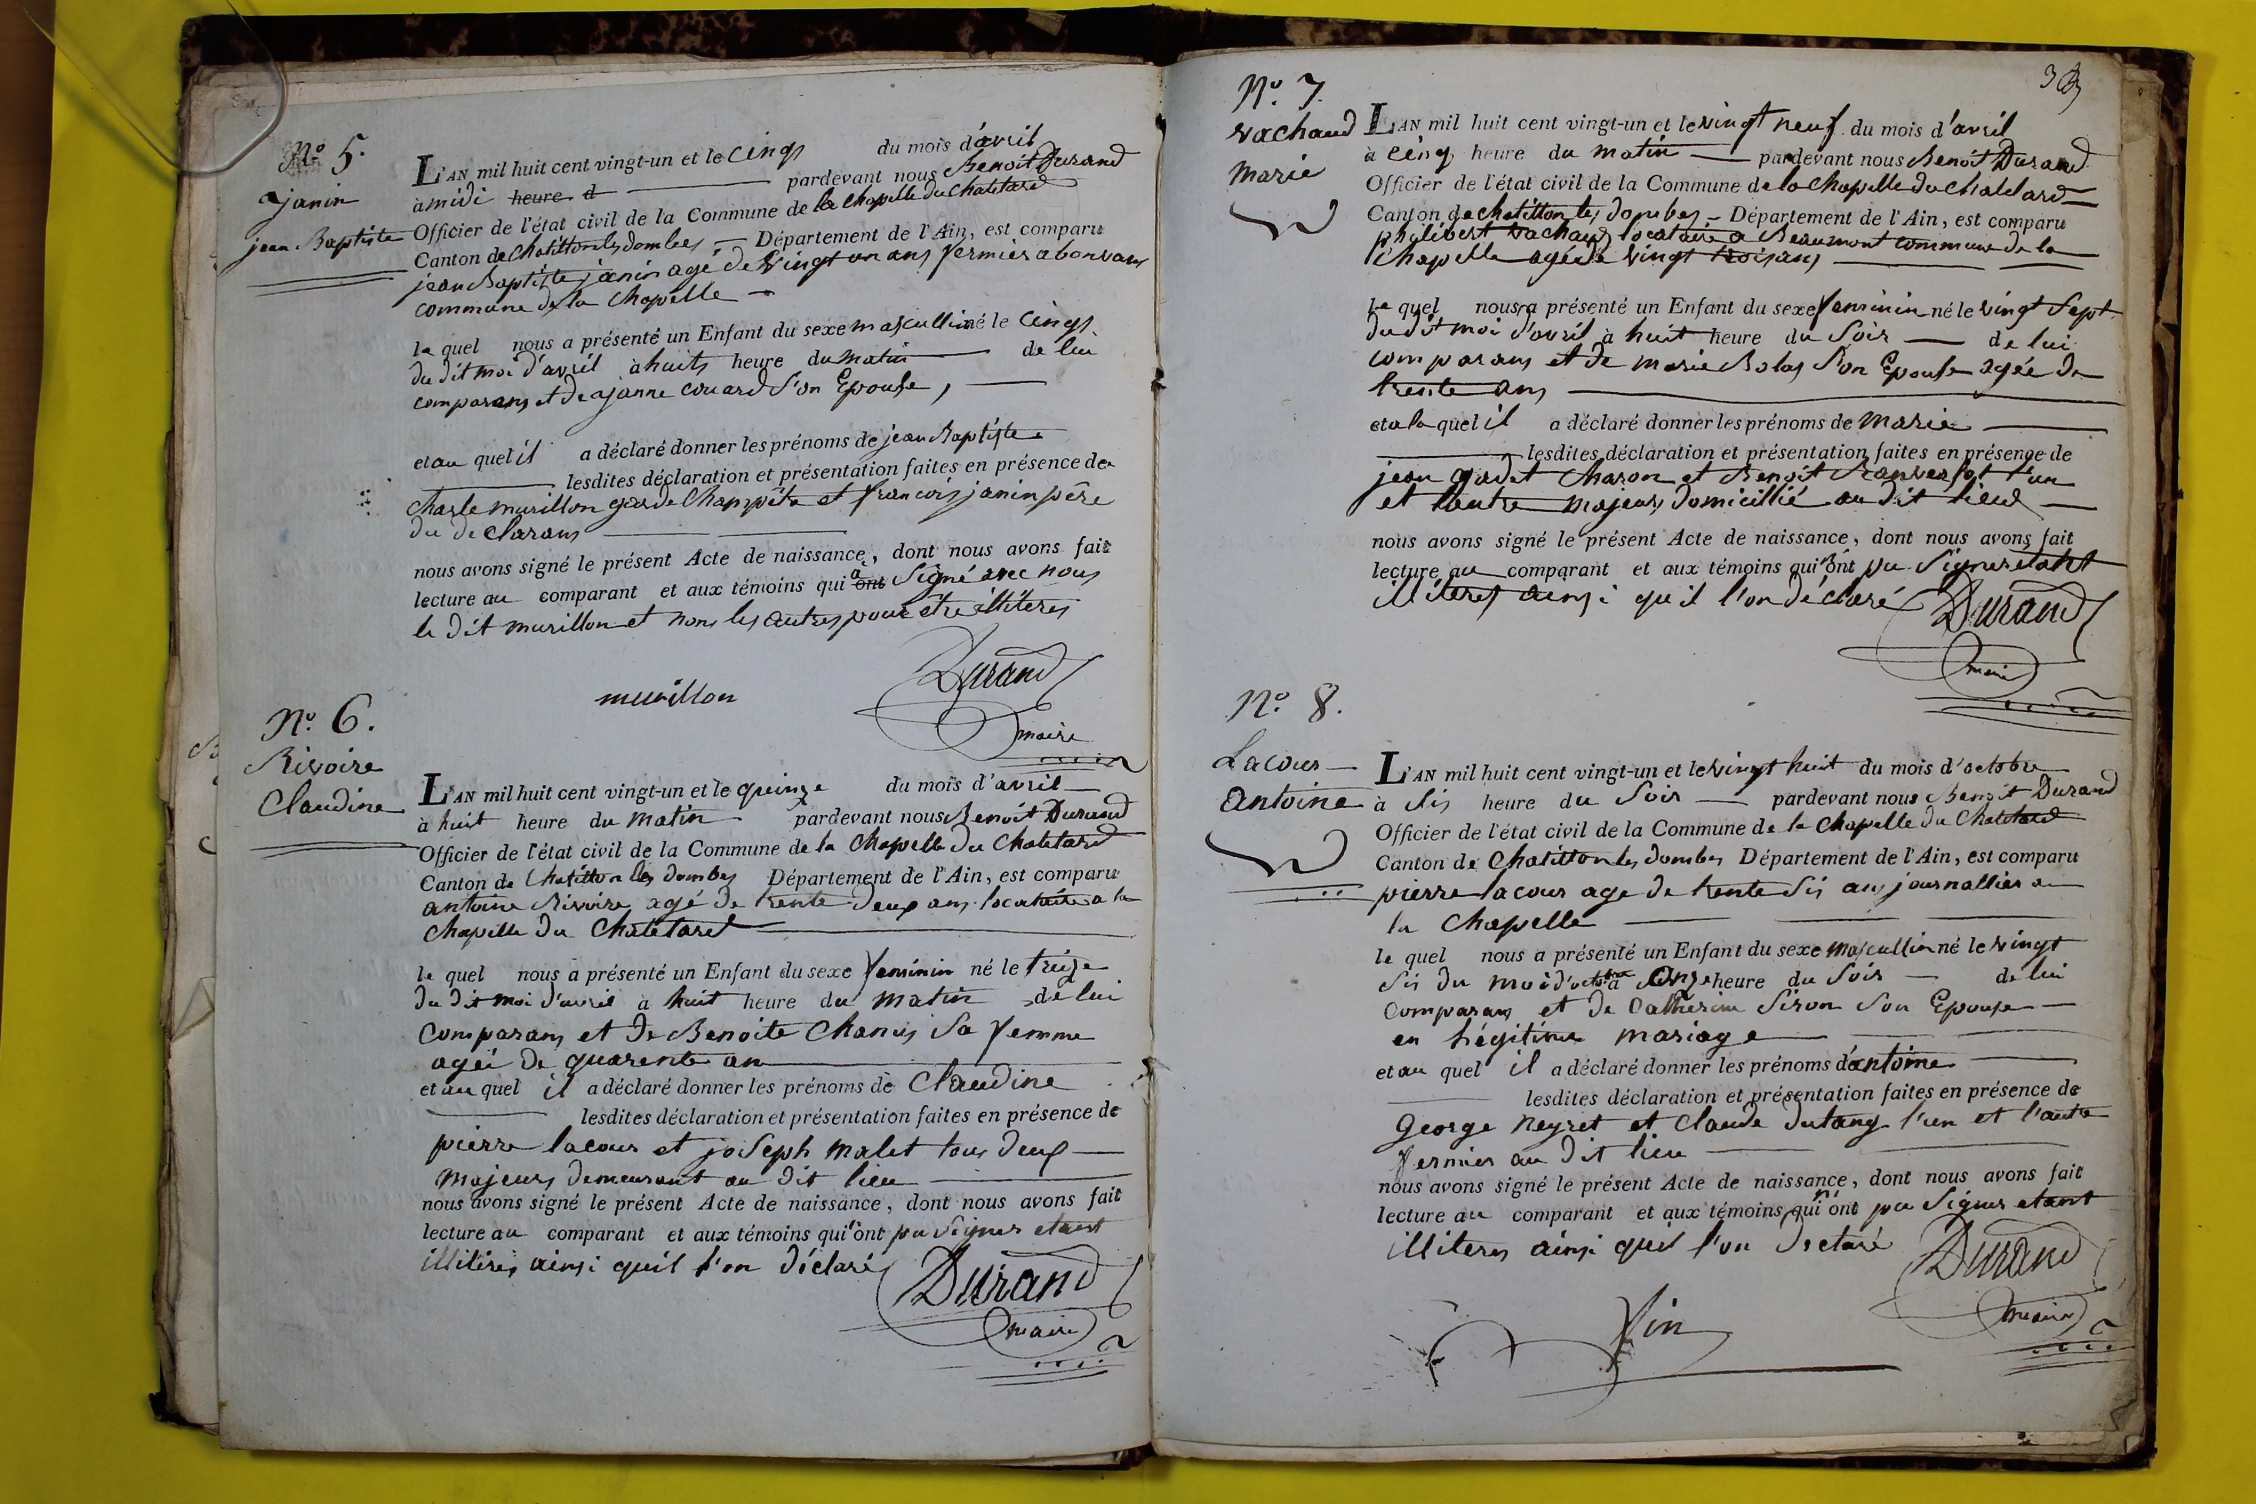 No. 5.
ajanin
jean Baptiste
L'AN mil huit cent vingt-un et le cinq du mois d'avril
à midi heure d pardevant nous Benoit Durand
Officier de l'état civil de la Commune de la Chapelle du Chatelard
Canton de Chatillon les dombes Département de l'Ain, est comparu
jean Baptiste janin agé de vingt un ans fermier a
commune de la Chapelle
le quel nous a présenté un Enfant du sexe mascullin né le cinq
du dit moi d'avril à huits heure du matin de lui
comparans et de ajanne couard s'on Epouse,
et au quel il a déclaré donner les prénoms de jean Baptiste
lesdites déclaration et présentation faites en présence de
Charle murillon garde Champêtre et francois janin père
du declarans
nous avons signé le présent Acte de naissance, dont nous avons fait
lecture au comparant et aux témoins qui a ont signé avec nous
le dit murillon et nons les autres pour être illiteres
murillon
Durand
maire
No. 6.
Rivoire
Claudine
L'AN mil huit cent vingt-un et le quinze du mois d'avril
à huit heure du matin pardevant nous Benoit Durand
Officier de l'état civil de la Commune de la Chapelle du Chatelard
Canton de Chatillon les dombes Département de l'Ain, est comparu
antoine Rivoire agé de trente deux ans locataire a la
Chapelle du Chatelard
le quel nous a présenté un Enfant du sexe feminin né le treize
du dit moi d'avril à huit heure du matin de lui
comparans et de Benoite Chanis sa femme
ageé de quarente an
et au quel il a déclaré donner les prénoms de Claudine
lesdites déclaration et présentation faites en présence de
pierre lacour et joseph malet tous deux
majeurs demeurant au dit lieu
nous avons signé le présent Acte de naissance, dont nous avons fait
lecture au comparant et aux témoins qui n'ont pu signer etant
illiteres ainsi quil l'on déclaré
Durand
maire
33
No. 7.
vachaud
marie
L'AN mil huit cent vingt-un et le vingt neuf du mois d'avril
à cinq heure du matin pardevant nous Benoit Durand
Officier de l'état civil de la Commune de la Chapelle du Chatelard
Canton de chatillon les dombes Département de l'Ain, est comparu
philibert vachaud locataire a Beaumont commune de la
Chapelle agé de vingt trois ans
le quel nous a présenté un Enfant du sexe feminin né le vingt sept
du dit moi d'avril à huit heure du soir de lui
comparans et de marie Bolas s'on Epouse agée de
trente ans
et a la quel il a déclaré donner les prénoms de marie
lesdites déclaration et présentation faites en présence de
jean gadet Charon et Benoit l'un
et lautre majeurs domicillié au dit lieu
nous avons signé le présent Acte de naissance, dont nous avons fait
lecture au comparant et aux témoins qui n'ont pu signer étant
illiteres ainsi qu'il l'on déclaré
Durand
maire
No. 8.
Lacour
antoine
L'AN mil huit cent vingt-un et le vingt huit du mois d'octobre
à sis heure du soir pardevant nous Benoit Durand
Officier de l'état civil de la Commune de la Chapelle du Chatelard
Canton de Chatillon les dombes Département de l'Ain, est comparu
pierre lacour age de trente sis ans journallier a
la Chapelle
le quel nous a présenté un Enfant du sexe mascullin né le vingt
sis du moi d'octobre à onze heure du soir de lui
comparans et de Catherine Siron son Epouse
en légitime mariage
et au quel il a déclaré donner les prénoms d'antoine
lesdites déclaration et présentation faites en présence de
george neyret et Claude dutang l'un et l'autre
fermier au dit lieu
nous avons signé le présent Acte de naissance, dont nous avons fait
lecture au comparant et aux témoins qui n'ont pu signer etant
illiteres ainsi quil l'on declaré
Durand
maire
fin